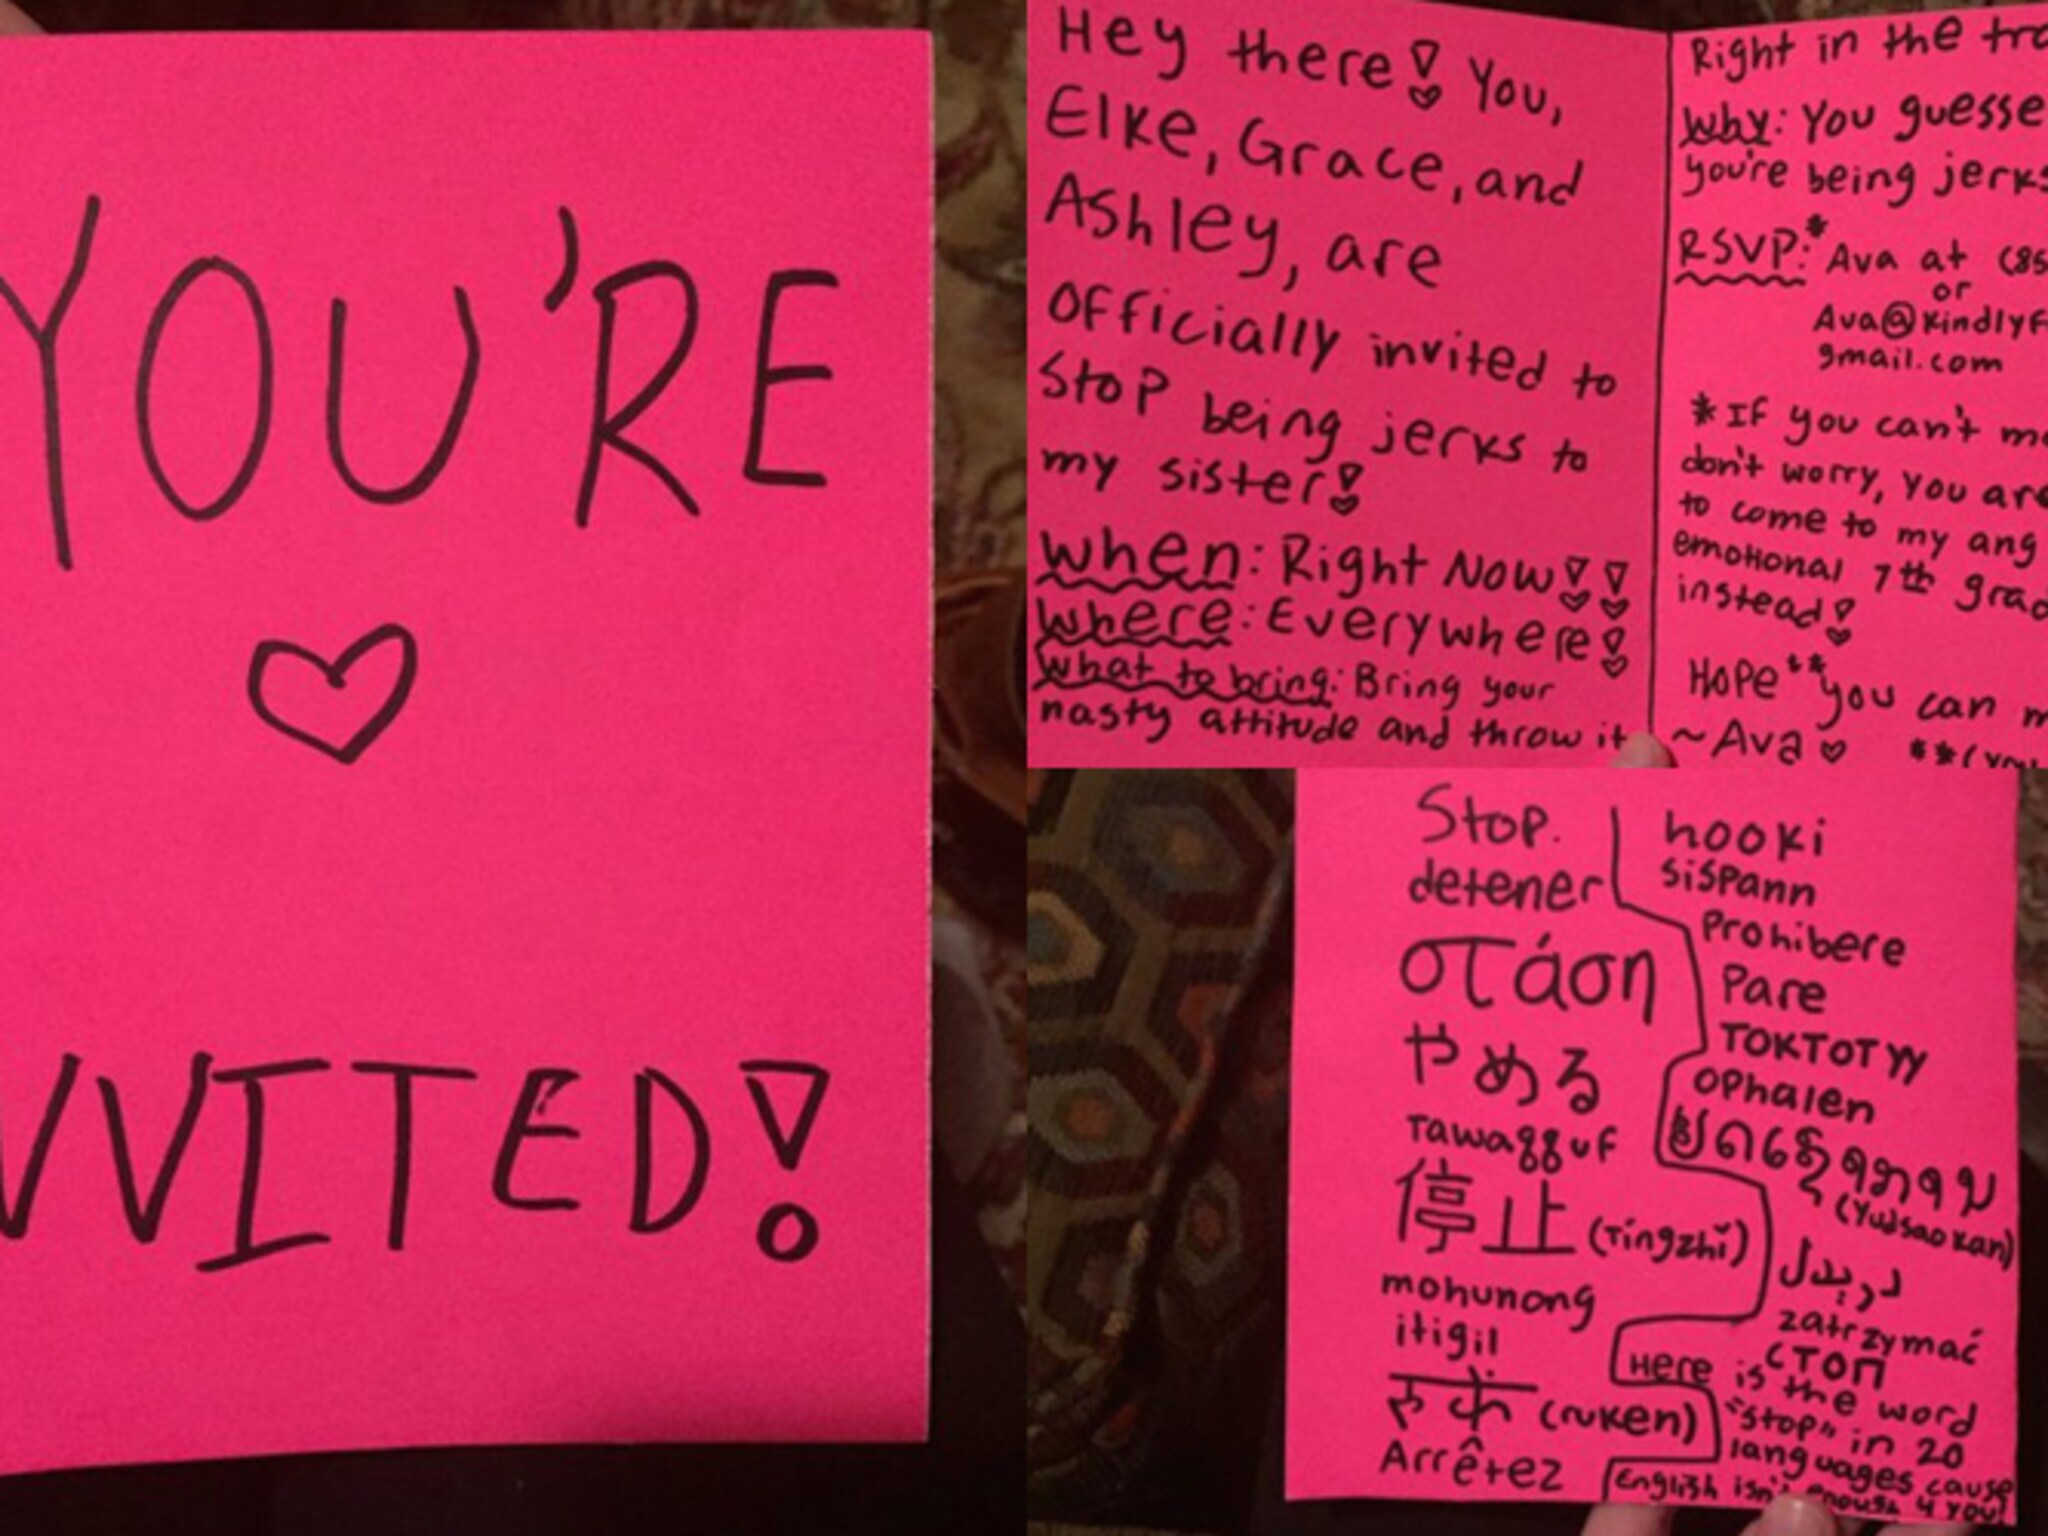 YOU'RE
VITED!
Hey there! You,
Elke, Grace, and
Ashley, are
officially invited to
stop being jerks to
my sister!
When: Right Now!!
Where: Everywhere!
What to bring: Bring your
nasty attitude and throw it
Right in the tra
Why: You guesse
you're being jerks
RSVP:* Ava at (85
or
Ava@kindlyF
gmail.com
*If you can't m
don't worry, you are
to come to my ang
emotional 7th grad
instead!
Hope** you can m
~Ava
**(you
Stop.
detener
στάση
やめる
Tawaqquf
停止 (Tíngzhǐ)
mohunong
itigil
रुकें (ruken)
Arrêtez
hooki
sispann
Prohibere
Pare
TOKTOTYY
ophalen
(Yudsaokan)
دريدل
zatrzymać
СТОП
Here is the word
"stop" in 20
languages cause
English isn't enough 4 you!